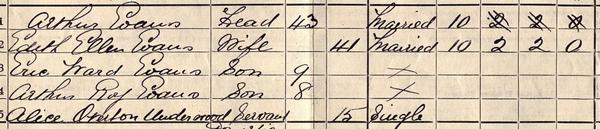 1 Arthur Evans Head 43 Married 10 2 2 0
2 Edith Ellen Evans Wife 41 Married 10 2 2 0
3 Eric Ward Evans Son 9
4 Arthur Evans Son 8
5 Alice Underwood Servant 15 Single